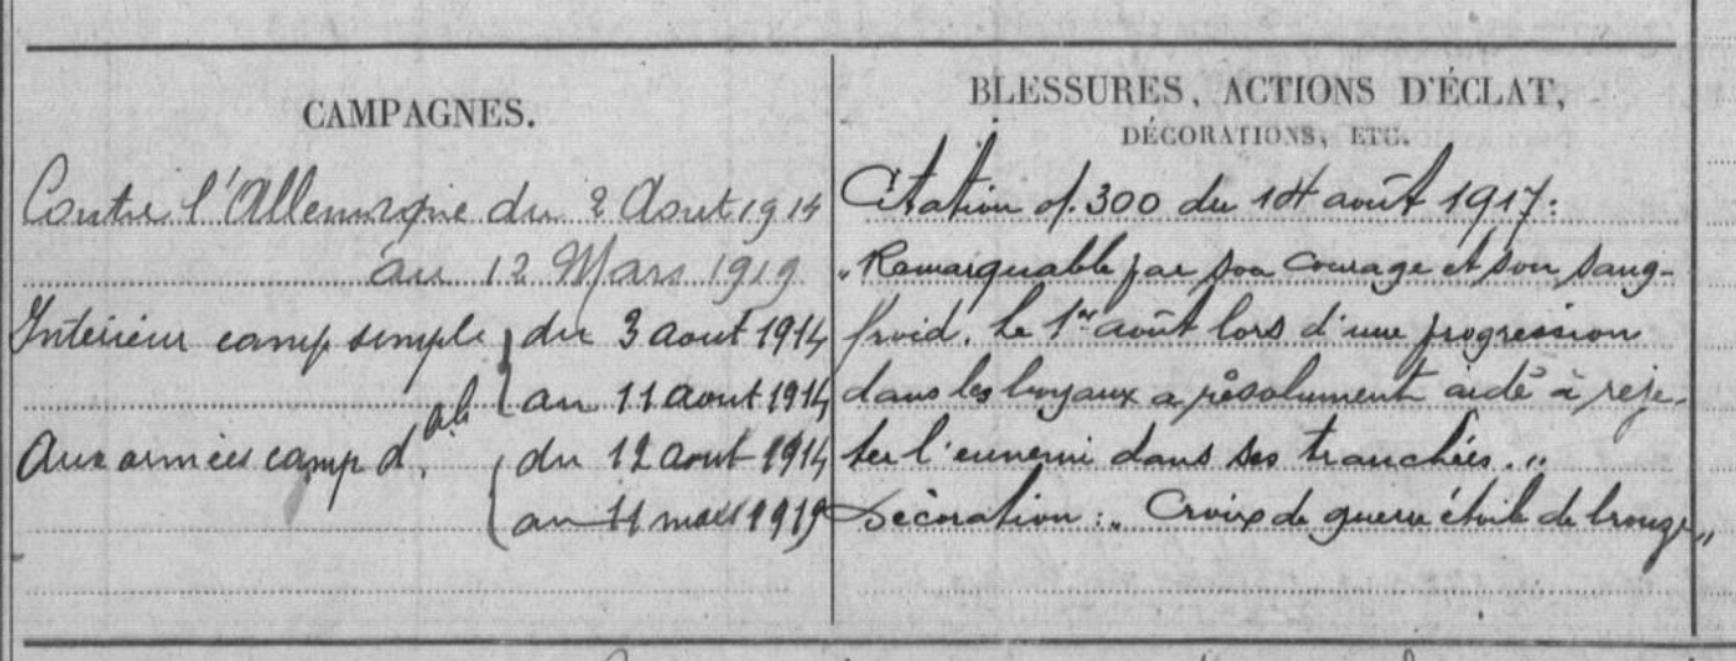 CAMPAGNES.
Contre l'Allemagne du 2 Aout 1914
au 12 Mars 1919
Intérieur camp simple du 3 aout 1914
au 11 aout 1914
Aux armées camp d.ble du 12 aout 1914
au 11 mars 1919
BLESSURES, ACTIONS D'ÉCLAT,
DÉCORATIONS, ETC.
Citation d. 300 du 14 août 1917:
"Remarquable par son courage et son sang-
froid. Le 1er août lors d'une progression
dans les boyaux a résolument aidé à reje-
ter l'ennemi dans ses tranchées."
Décoration: "Croix de guerre étoile de bronze"